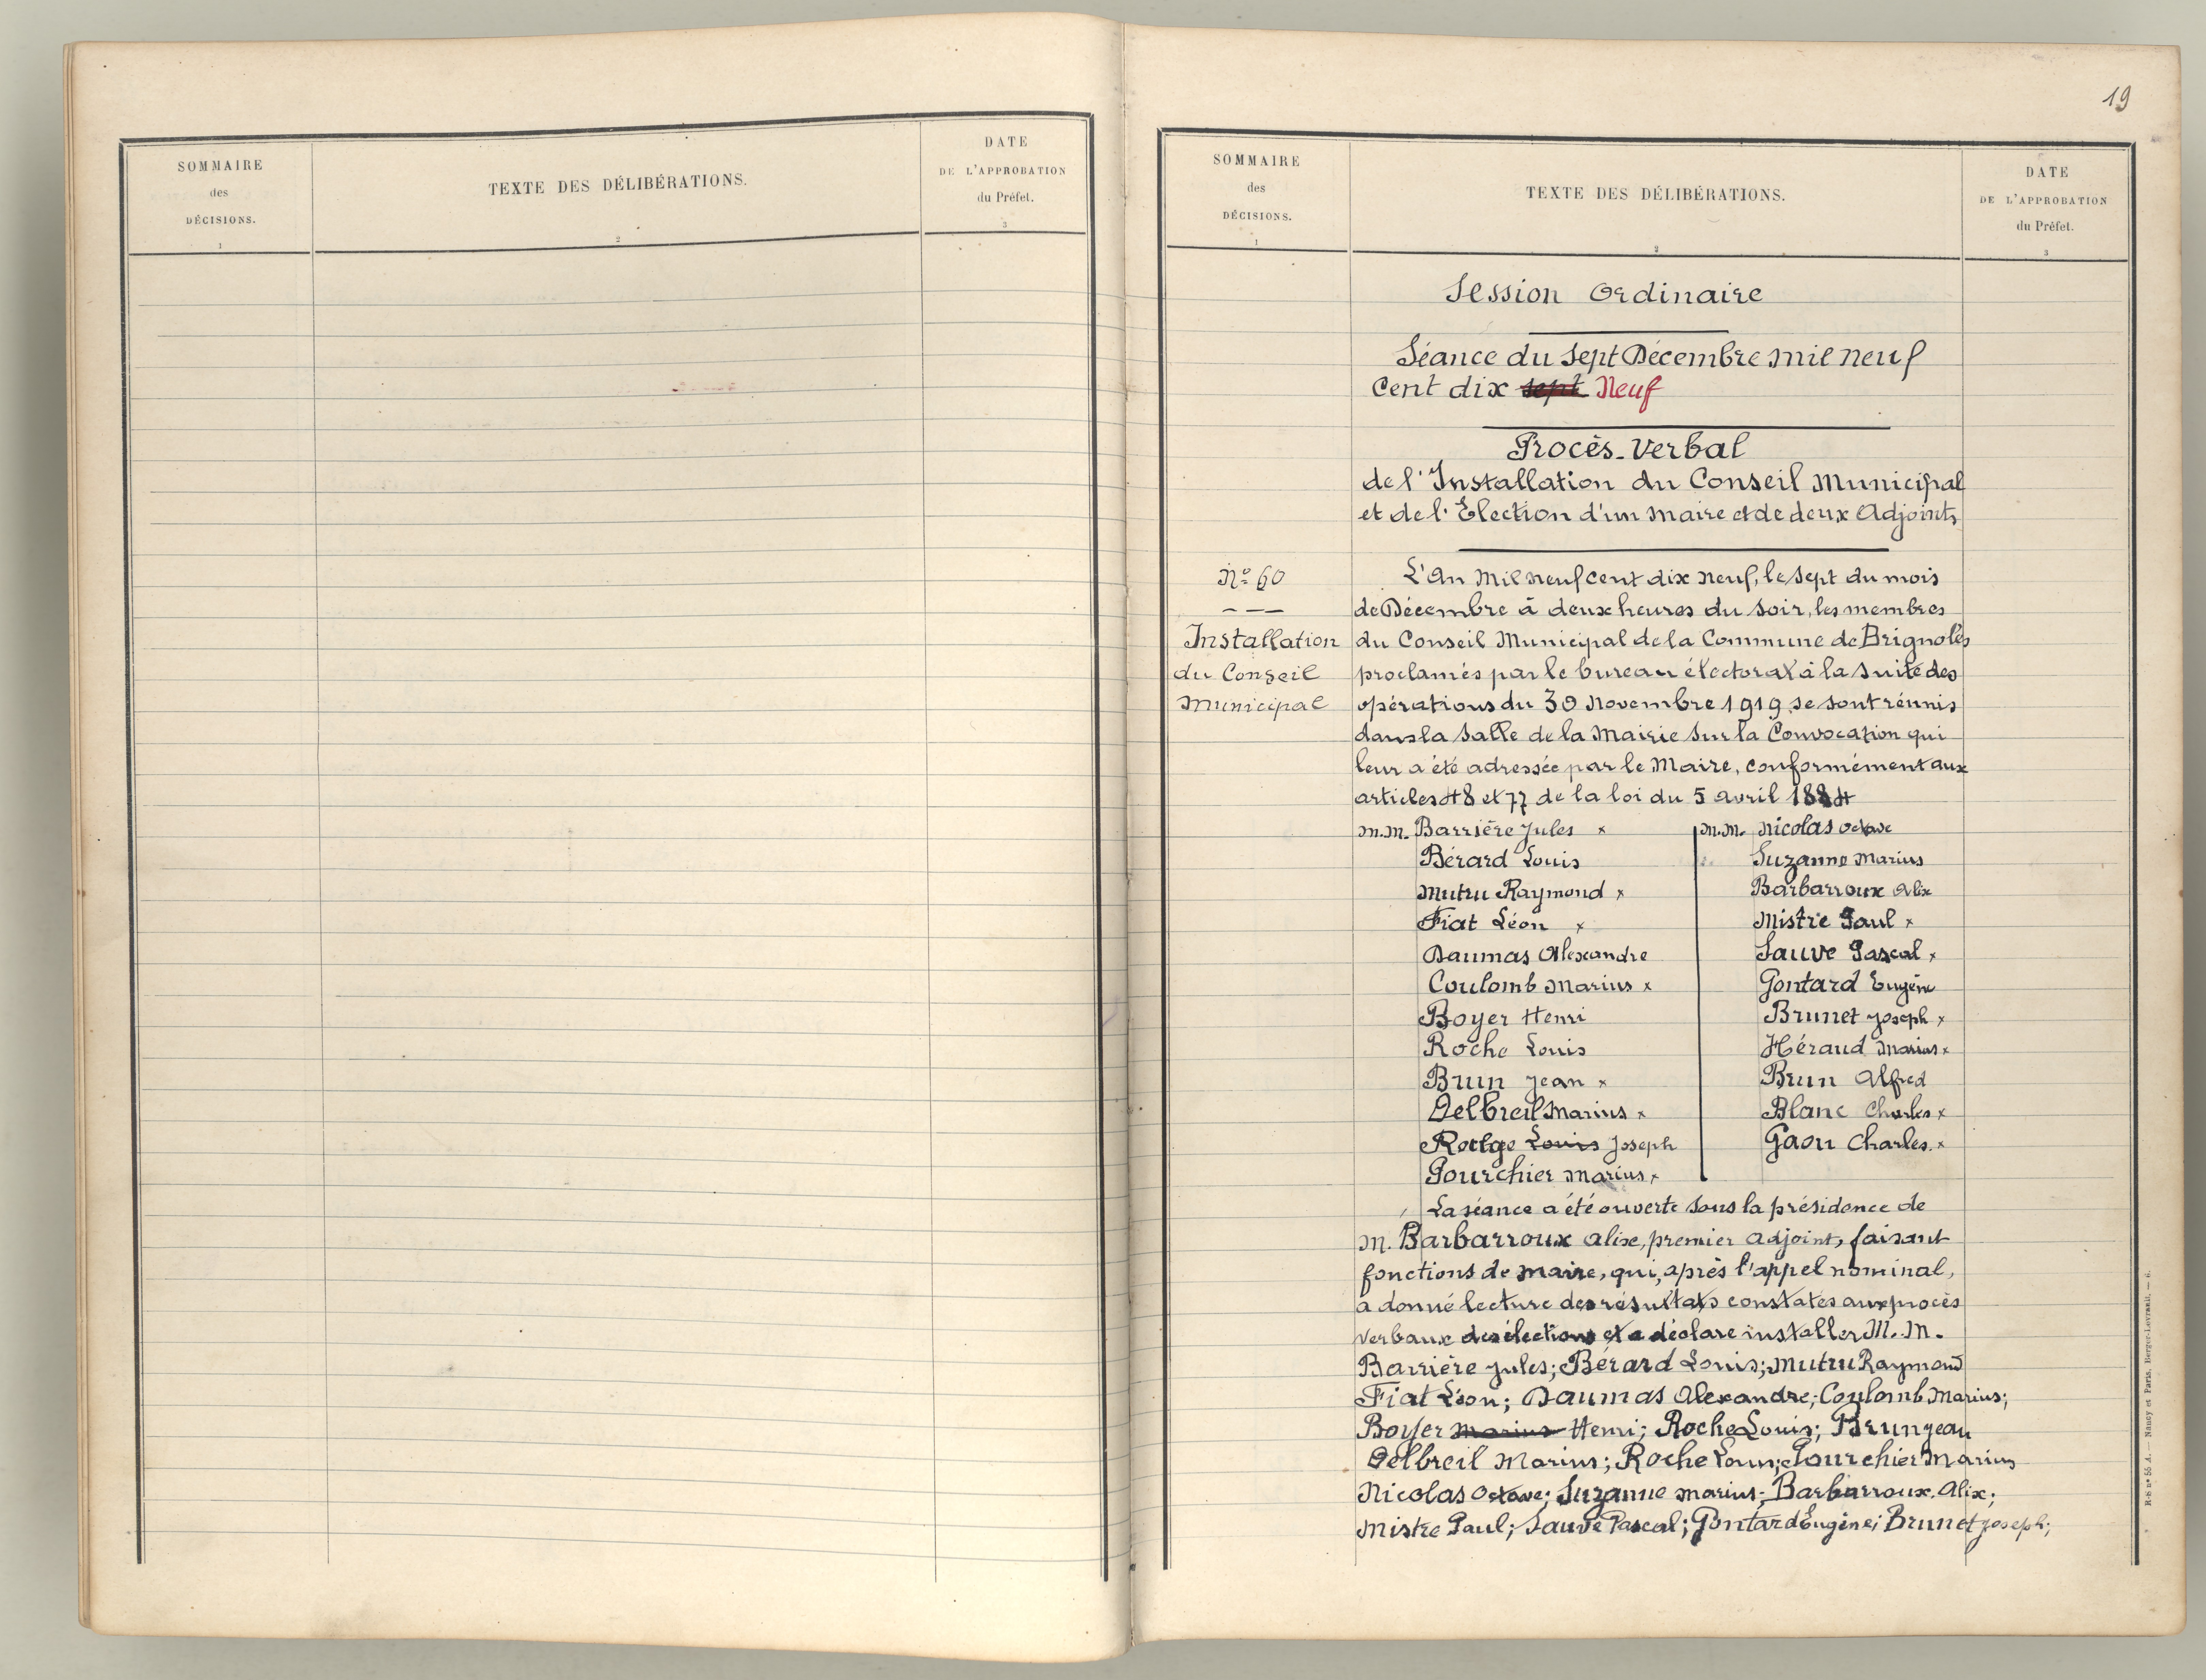 SOMMAIRE
des
DÉCISIONS.
1
TEXTE DES DÉLIBÉRATIONS.
2
DATE
DE L'APPROBATION
du Préfet.
3
19
SOMMAIRE
des
DÉCISIONS.
1
TEXTE DES DÉLIBÉRATIONS.
2
DATE
DE L'APPROBATION
du Préfet.
3
Session Ordinaire
Séance du Sept Décembre mil neuf
Cent dix sept Neuf
Procès-Verbal
de l'Installation du Conseil Municipal
et de l'Election d'un Maire et de deux Adjoints
N° 60
Installation
du Conseil
Municipal
L'An Mil neuf cent dix neuf, le sept du mois
de Décembre à deux heures du soir, les membres
du Conseil Municipal de la Commune de Brignoles
proclamés par le bureau électoral à la suite des
opérations du 30 Novembre 1919 se sont réunis
dans la salle de la Mairie sur la Convocation qui
leur a été adressée par le Maire, conformément aux
articles 48 et 77 de la loi du 5 avril 1884
M.M. Barrière Jules x
Bérard Louis
Mutru Raymond x
Fiat Léon x
Daumas Alexandre
Coulomb Marius x
Boyer Henri
Roche Louis
Brun Jean x
Delbreil Marius x
Rouge Louis Joseph
Pourchier Marius x
M.M. Nicolas Octave
Suzanne Marius
Barbarroux Alix
Mistre Paul x
Sauve Pascal x
Gontard Eugène
Brunet Joseph x
Héraud Marius x
Brun Alfred
Blanc Charles x
Gaou Charles x
La séance a été ouverte sous la présidence de
M. Barbarroux Alix, premier Adjoint, faisant
fonctions de Maire, qui, après l'appel nominal,
a donné lecture des résultats constatés aux procès
verbaux des élections et a déclaré installer M.M.
Barrière Jules; Bérard Louis; Mutru Raymond
Fiat Léon; Daumas Alexandre; Coulomb Marius;
Boyer Marius Henri; Roche Louis; Brun Jean
Delbreil Marius; Roche Louis; Pourchier Marius
Nicolas Octave; Suzanne Marius; Barbarroux Alix;
Mistre Paul; Sauve Pascal; Gontard Eugène; Brunet Joseph;
R-S n° 55 A. — Nancy et Paris, Berger-Levrault. — 6.